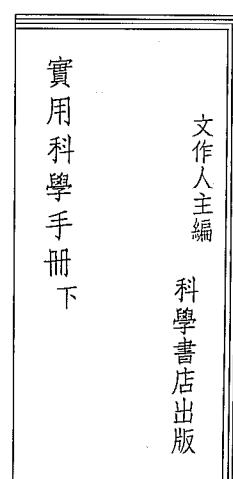 文作人主編
科學書店出版
實用科學手冊下